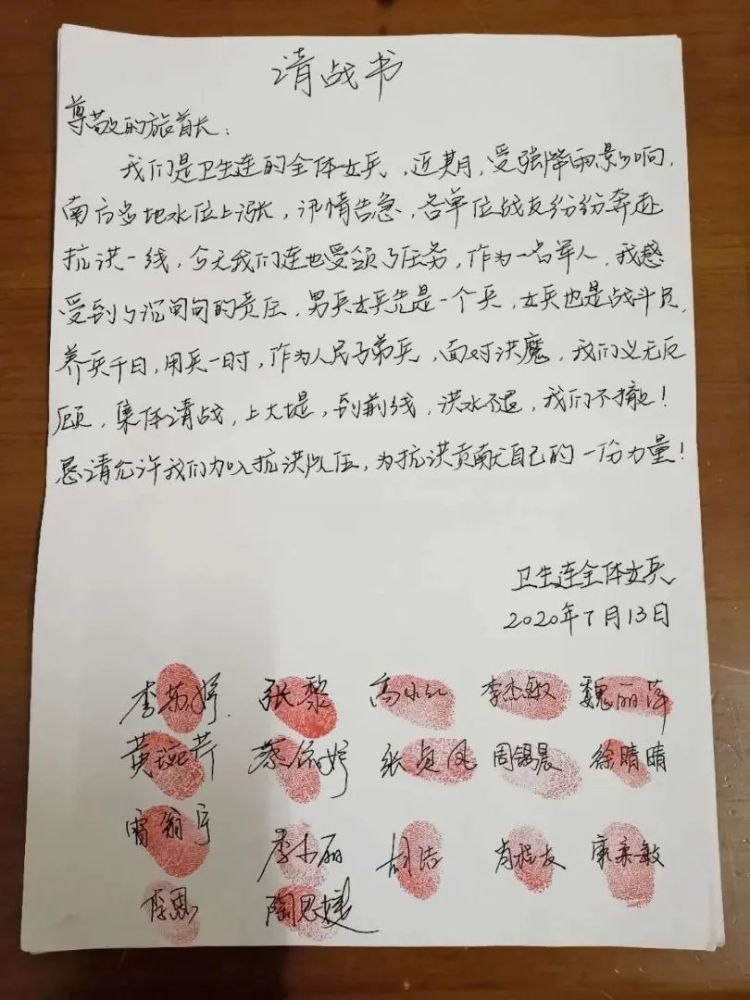 请战书
尊敬的旅首长:
我们是卫生连的全体女兵,近期,受强降雨影响,
南方多地水位上涨,汛情告急,各单位战友纷纷奔赴
抗洪一线,今天我们连也受领了任务,作为一名军人,我感
受到了沉甸甸的责任,男兵女兵先是一个兵,女兵也是战斗员,
养兵千日,用兵一时,作为人民子弟兵,面对洪魔,我们义无反
顾,集体请战,上大堤,到前线,洪水不退,我们不撤!
恳请允许我们加入抗洪队伍,为抗洪贡献自己的一份力量!
卫生连全体女兵
2020年7月13日
李苏婷 张黎 高小红 李杰敏 魏丽萍
黄婉芹 蔡依婷 张贞凤 周锡晨 徐晴晴
李小丽 胡洁 肖程友 廖亲敏
陶思婕